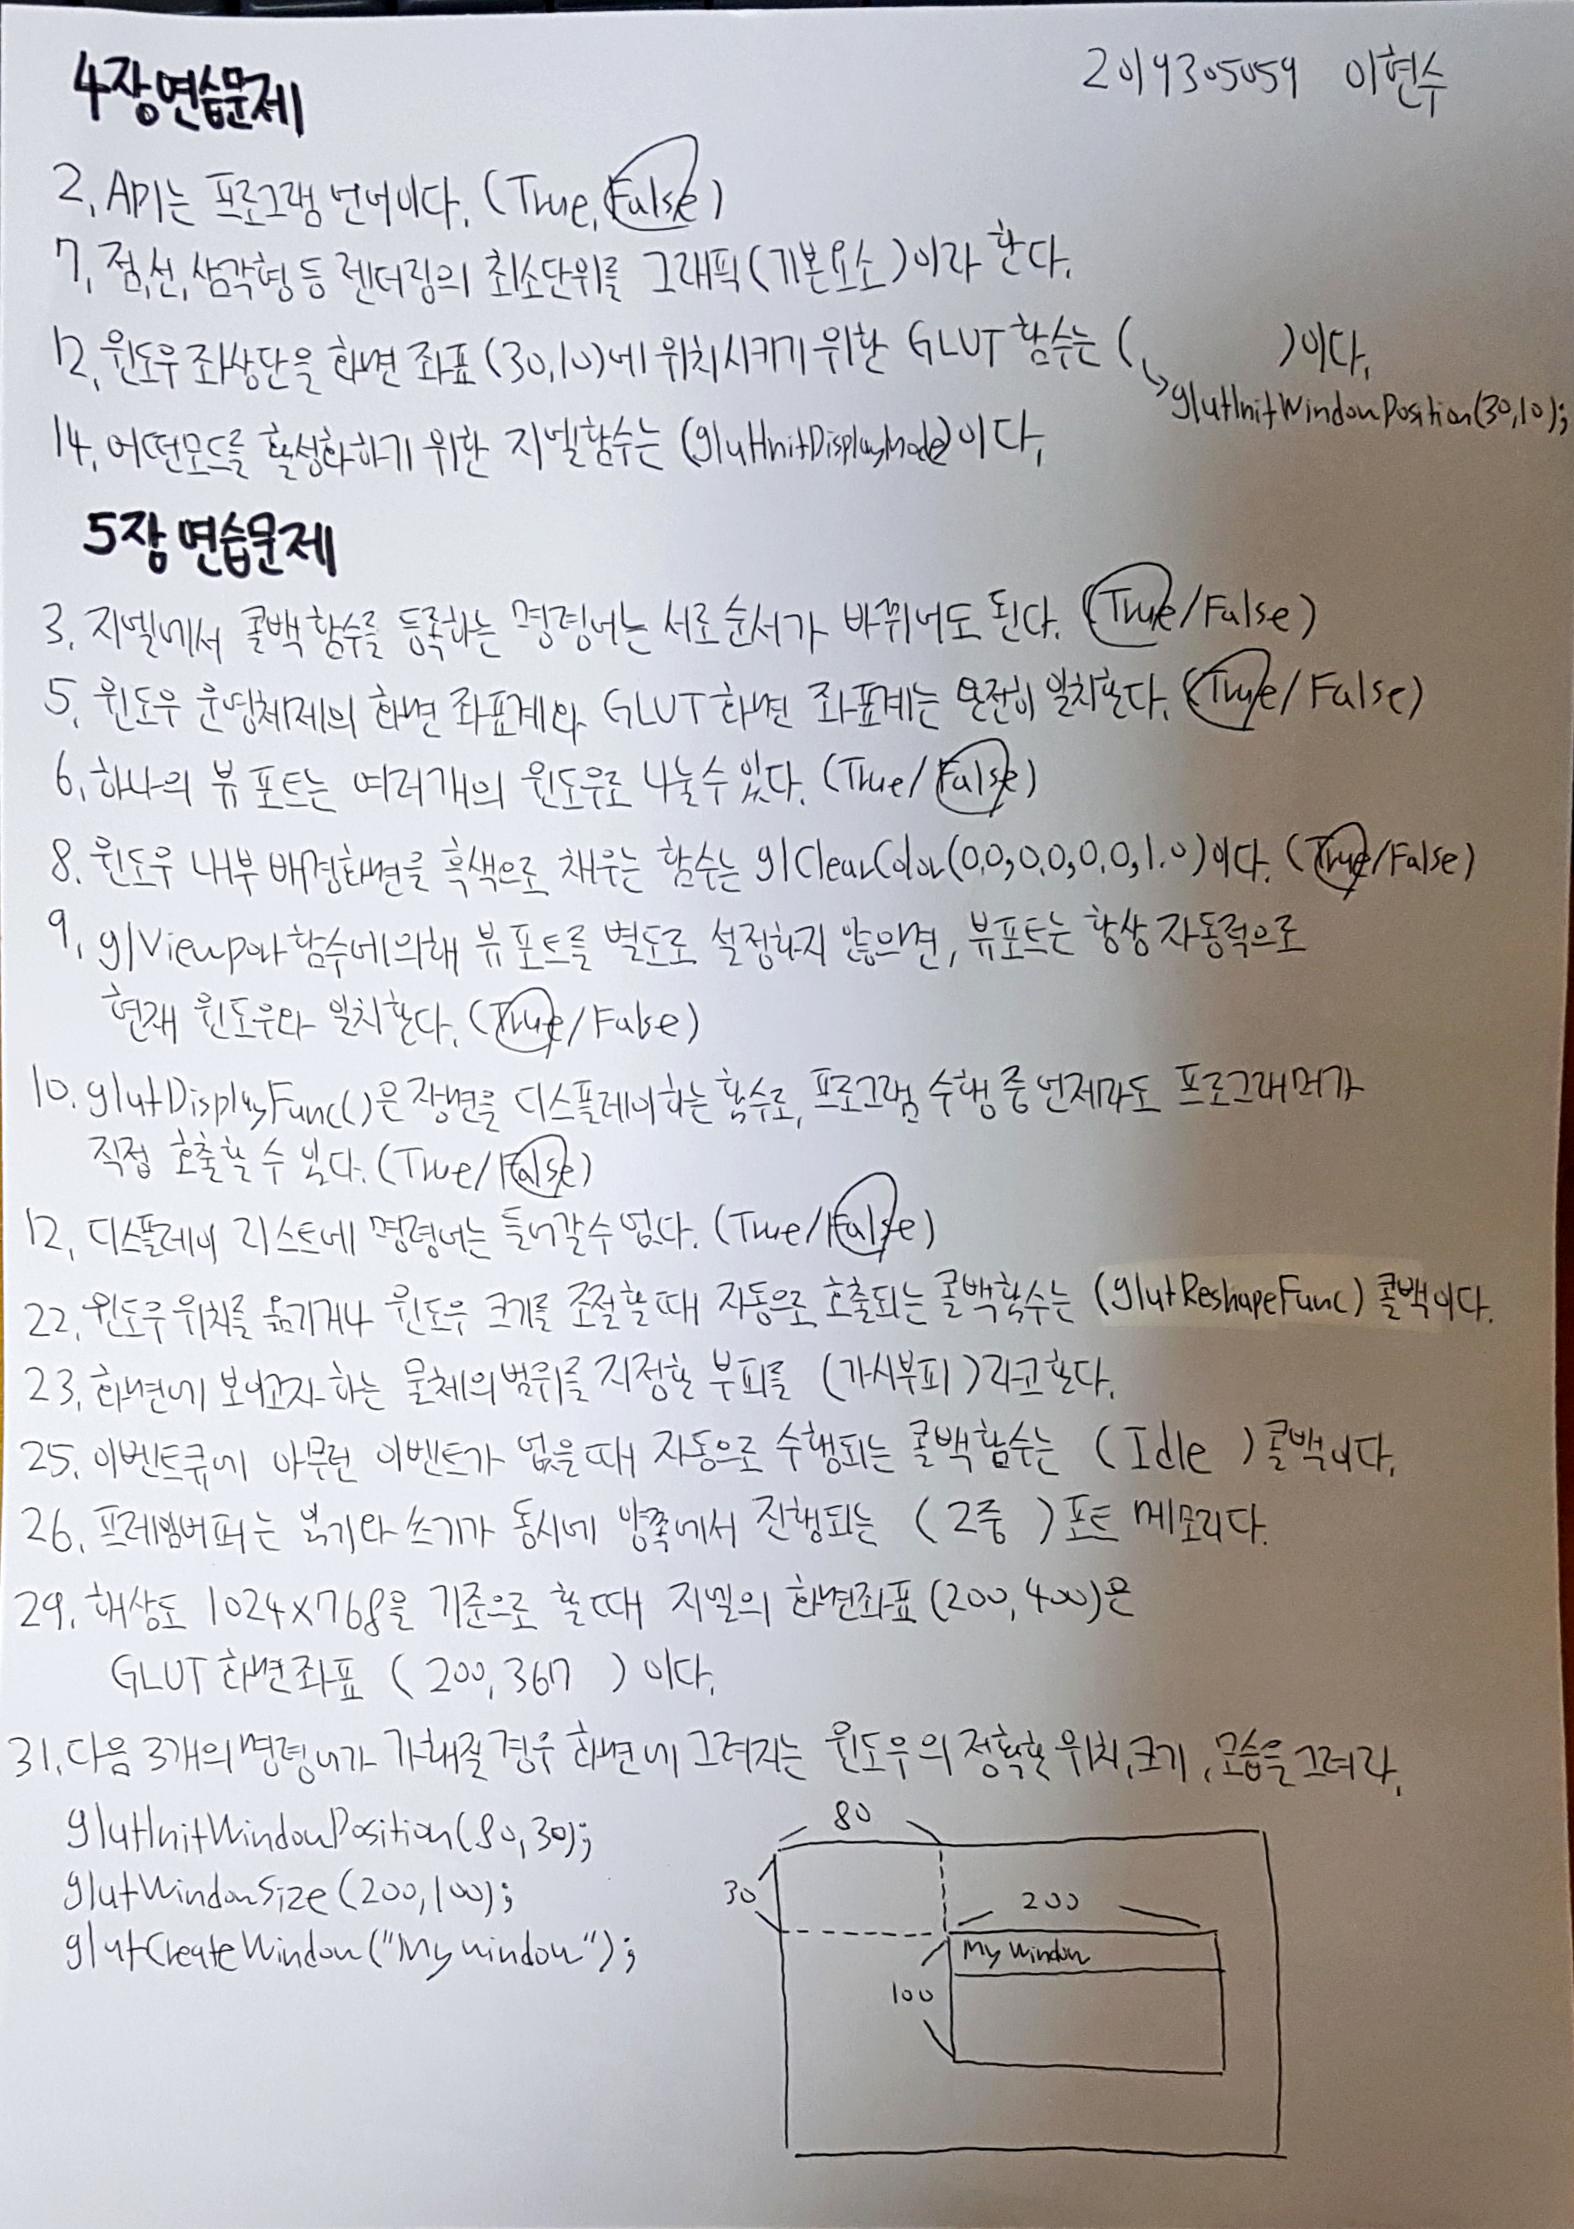 4장 연습문제
2019305059 이현수
2. API는 프로그램 언어이다. (True, False)
7. 점,선,삼각형 등 렌더링의 최소단위를 그래픽(기본요소)이라 한다.
12. 윈도우 좌상단을 화면 좌표 (30,10)에 위치시키기 위한 GLUT 함수는 ( )이다.
↳glutInitWindowPosition(30,10);
14. 어떤모드를 활성화하기 위한 지엘함수는 (glutInitDisplayMode)이다.
5장 연습문제
3. 지엘에서 콜백함수를 등록하는 명령어는 서로 순서가 바뀌어도 된다. (True/False)
5. 윈도우 운영체제의 화면 좌표계와 GLUT 화면 좌표계는 완전히 일치한다. (True/False)
6. 하나의 뷰포트는 여러개의 윈도우로 나눌수 있다. (True/False)
8. 윈도우 내부 배경화면을 흑색으로 채우는 함수는 glClearColor(0.0,0.0,0.0,1.0)이다. (True/False)
9. glViewport 함수에의해 뷰포트를 별도로 설정하지 않으면, 뷰포트는 항상 자동적으로
현재 윈도우와 일치한다. (True/False)
10. glutDisplayFunc()은 장면을 디스플레이하는 함수로, 프로그램 수행 중 언제라도 프로그래머가
직접 호출할 수 있다. (True/False)
12. 디스플레이 리스트에 명령어는 들어갈수 없다. (True/False)
22. 윈도우 위치를 옮기거나 윈도우 크기를 조절할 때 자동으로 호출되는 콜백함수는 (glutReshapeFunc) 콜백이다.
23. 화면에 보이고자 하는 물체의 범위를 지정한 부피를 (가시부피)라고한다.
25. 이벤트큐에 아무런 이벤트가 없을 때 자동으로 수행되는 콜백함수는 (Idle)콜백이다.
26. 프레임버퍼는 읽기와 쓰기가 동시에 양쪽에서 진행되는 (2중)포트 메모리다.
29. 해상도 1024x768을 기준으로 할 때 지엘의 화면좌표 (200,400)은
GLUT 화면좌표 (200,367)이다.
31. 다음 3개의 명령어가 가해질 경우 화면에 그려지는 윈도우의 정확한 위치,크기,모습을 그려라.
glutInitWindowPosition(80,30);
glutWindowSize(200,100);
glutCreateWindow("My window");
80
30
200
My Window
100